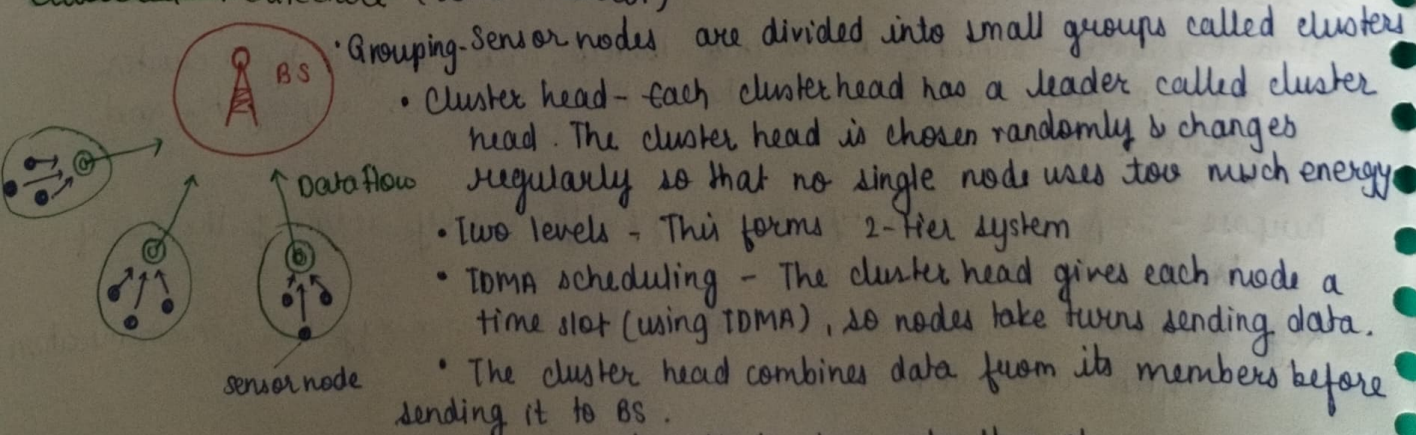 BS
• Grouping - Sensor nodes are divided into small groups called clusters
• Cluster head - Each clusterhead has a leader called cluster
head. The cluster head is chosen randomly & changes
Data flow
regularly so that no single node uses too much energy
• Two levels - This forms 2-tier system
• TDMA scheduling - The cluster head gives each node a
time slot (using TDMA), so nodes take turns sending data.
sensor node
• The cluster head combines data from its members before
sending it to BS.